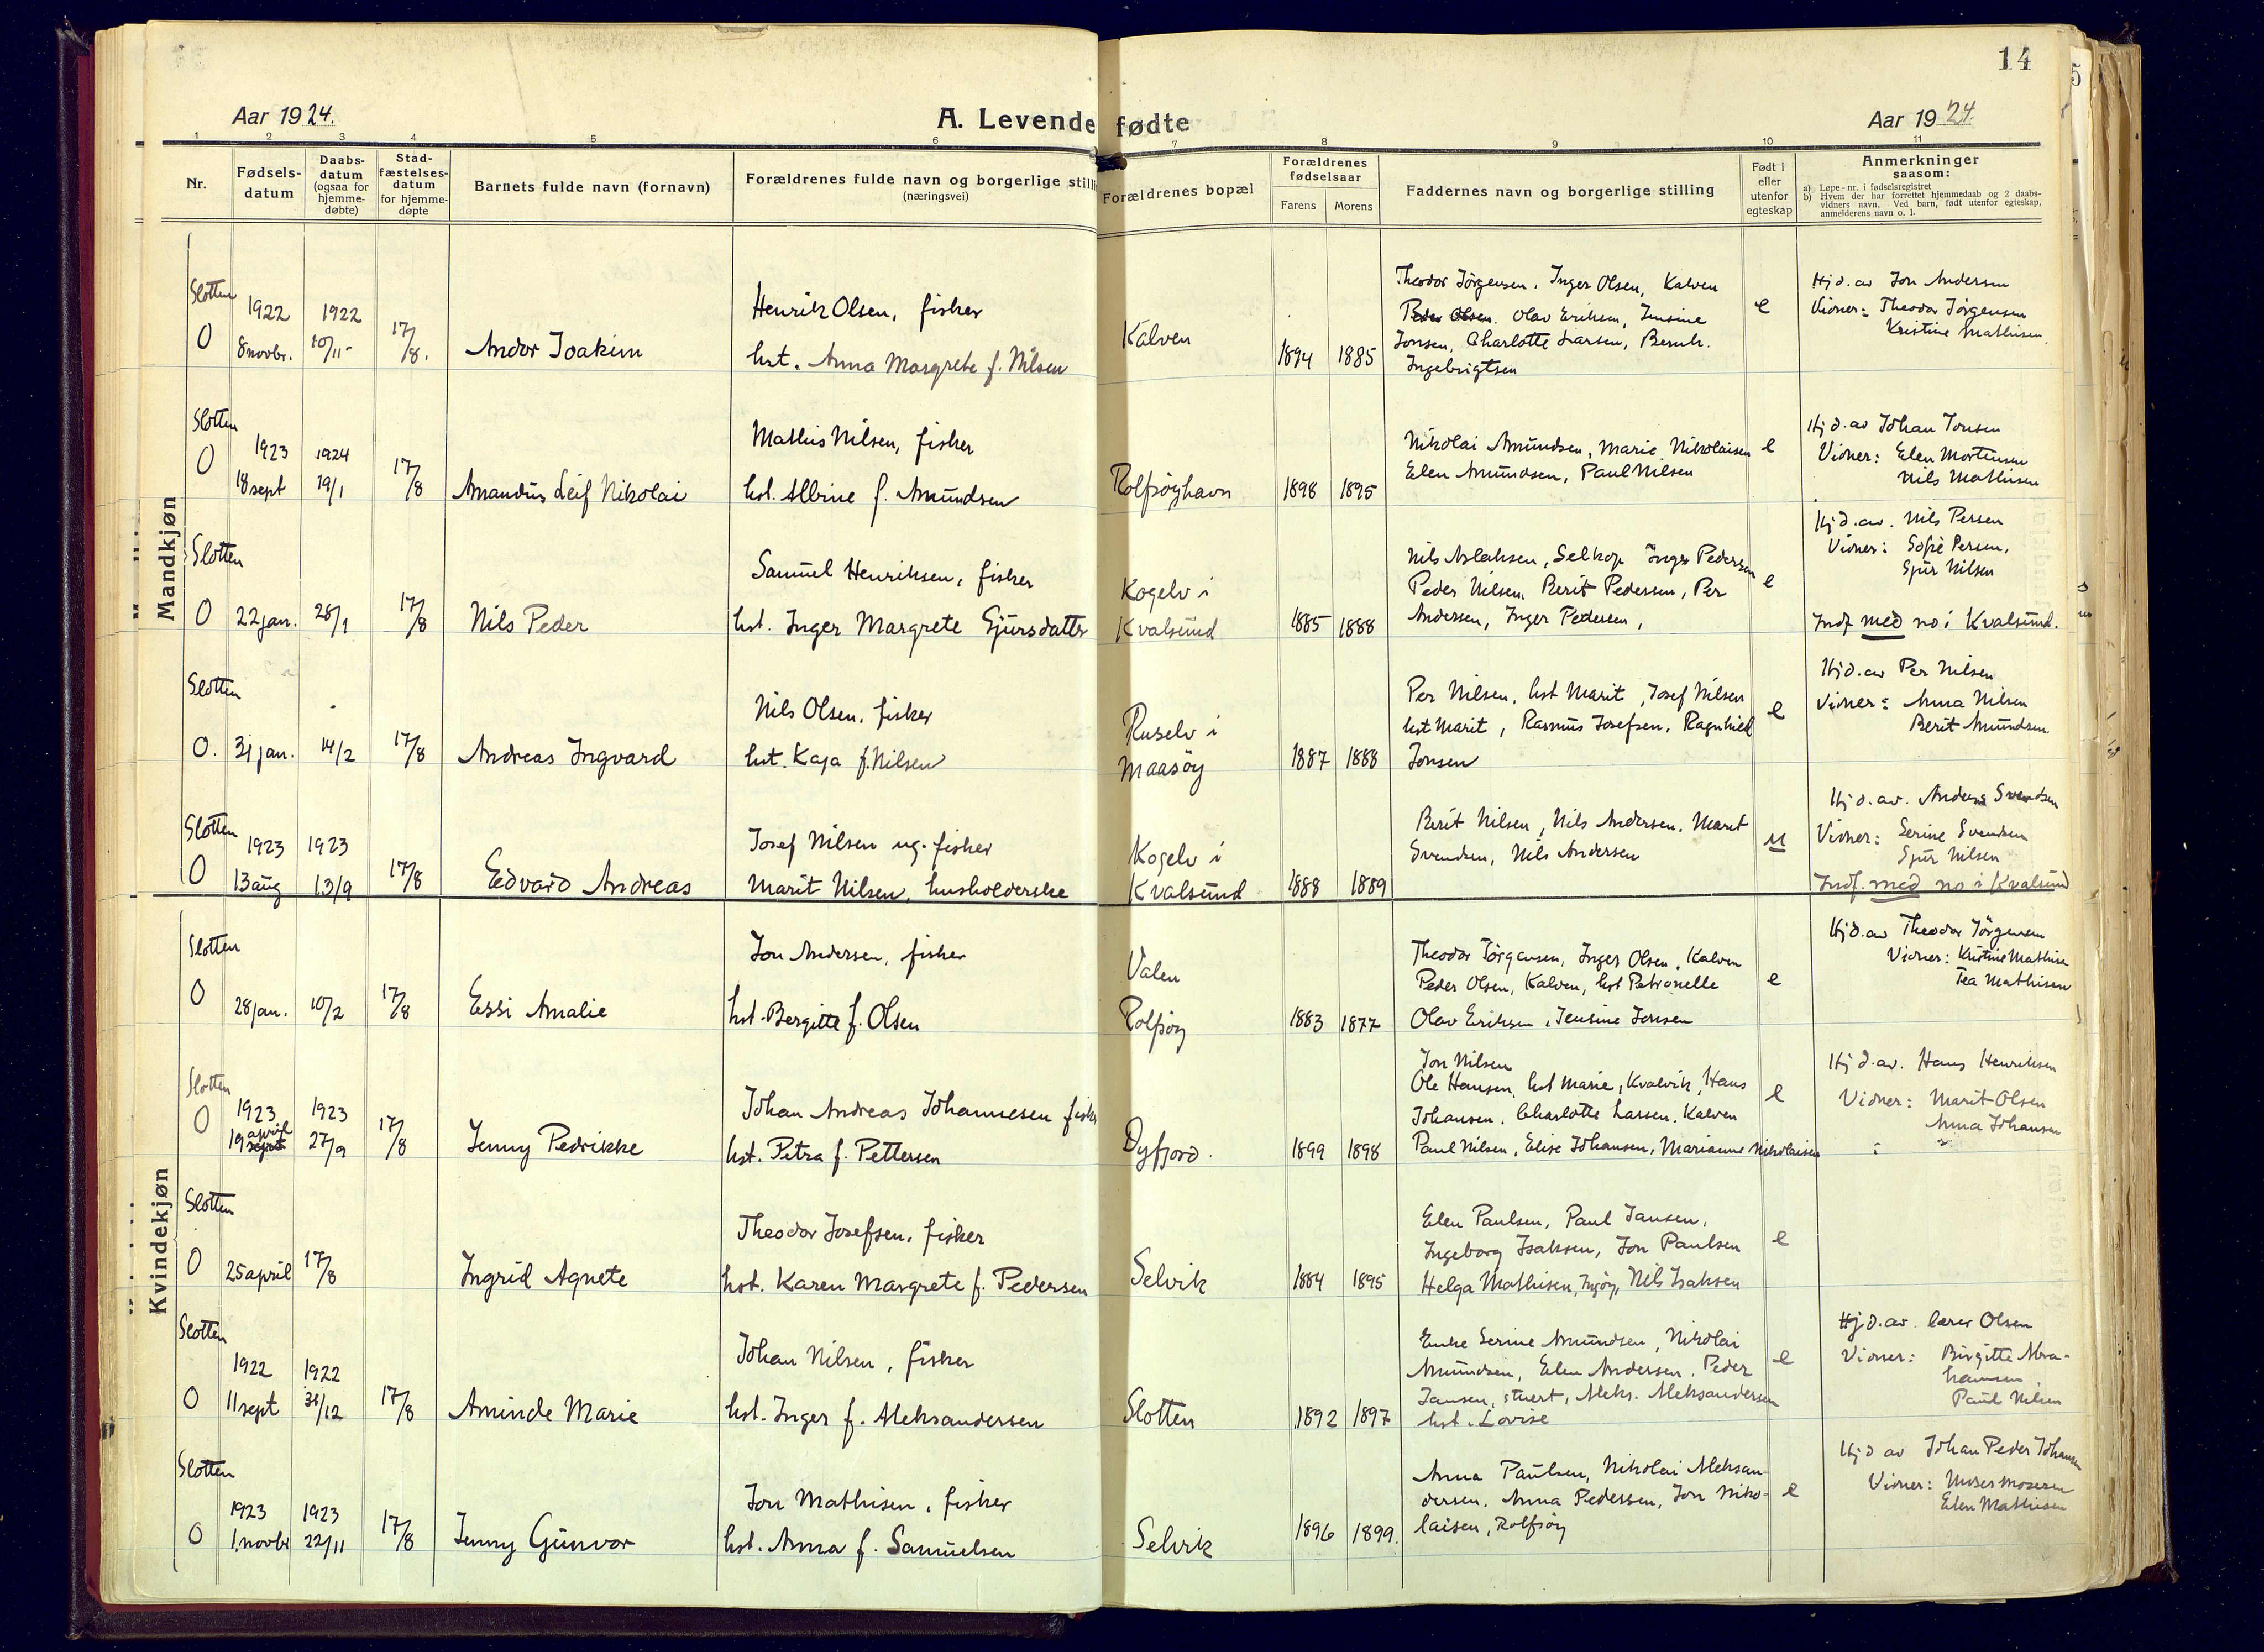 14
Aar 1924.
A. Levende fødte
Aar 1924.
1 2 3 4 5 6 7 8 9 10 11
Nr.
Fødsels-
datum
Daabs-
datum
(ogsaa for
hjemme-
døbte)
Stad-
fæstelses-
datum
for hjemme-
døpte
Barnets fulde navn (fornavn)
Forældrenes fulde navn og borgerlige still
(næringsvei)
Forældrenes bopæl
Forældrenes
fødselsaar
Farens Morens
Faddernes navn og borgerlige stilling
Født i
eller
utenfor
egteskap
Anmerkninger
saasom:
a) Løpe-nr. i fødselsregistret
b) Hvem der har forrettet hjemmedaab og 2 daabs-
vidners navn. Ved barn, født utenfor egteskap,
anmelderens navn o. l.
Mandkjøn
Slotten
O
1922
8 novbr.
1922
10/11
17/8.
Andor Joakim
Henrik Olsen, fisker
hst. Anna Margrete f. Nilsen
Kalven
1894 1885
Theodor Jörgensen, Inger Olsen, Kalven
Peder Olsen. Olav Eriksen, Jensine
Jonsen, Charlotte Larsen, Bernh.
Ingebrigtsen
e
Hjd. av Jon Andersen
Vidner: Theodor Jörgensen
Kristine Mathisen.
Slotten
O
1923
18 sept
1924
19/1
17/8
Amandus Leif Nikolai
Mathis Nilsen, fisker
hst. Albine f. Amundsen
Rolfsöyhavn
1898 1895
Nikolai Amundsen, Marie Nikolaisen
Elen Amundsen, Paul Nilsen
e
Hjd. av Johan Jonsen
Vidner: Elen Mortensen
Nils Mathisen
Slotten
O
22 jan.
28/1
17/8
Nils Peder
Samuel Henriksen, fisker
hst. Inger Margrete Gjursdatter
Kogelv i
Kvalsund
1885 1888
Nils Aslaksen, Selkop Inger Pedersen
Peder Nilsen, Berit Pedersen, Per
Andersen, Inger Pedersen,
e
Hjd. av. Nils Persen
Vidner: Sofie Persen,
Gjur Nilsen
Indf med no i Kvalsund.
Slotten
O.
31 jan.
14/2
17/8
Andreas Ingvard
Nils Olsen, fisker
hst. Kaja f. Nilsen
Ruselv i
Maasöy
1887 1888
Per Nilsen, hst Marit, Josef Nilsen
hst Marit, Rasmus Josefsen, Ragnhild
Jonsen
e
Hjd. av Per Nilsen
Vidner: Anna Nilsen
Berit Amundsen.
Slotten
O
1923
13 aug
1923
13/9
17/8
Edvard Andreas
Josef Nilsen ug. fisker
Marit Nilsen, husholderske
Kogelv i
Kvalsund
1888 1889
Berit Nilsen, Nils Andersen, Marit
Svendsen, Nils Andersen
u
Hjd. av. Anders Svendsen
Vidner: Serine Svendsen
Gjur Nilsen
Indf. med no i Kvalsund
Kvindekjøn
Slotten
O
28 jan.
10/2
17/8
Essi Amalie
Jon Andersen, fisker
hst. Bergitte f. Olsen
Valen
Rolfsöy
1883 1877
Theodor Jörgensen, Inger Olsen, Kalven
Peder Olsen, Kalven, hst Petronelle
Olav Eriksen, Jensine Jonsen
e
Hjd. av Theodor Jörgensen
Vidner: Kristine Mathisen
Tea Mathisen
Slotten
O
1923
april
19 sept
1923
27/9
17/8
Jenny Pedrikke
Johan Andreas Johannesen fisker
hst. Petra f. Pettersen
Dyfjord.
1899 1898
Jon Nilsen
Ole Hansen, hst Marie, Kvalvik, Hans
Johansen, Charlotte Larsen, Kalven
Paul Nilsen, Elise Johansen, Marianne Nikolaisen
e
Hjd. av. Hans Henriksen
Vidner: Marit Olsen
Anna Johansen
Slotten
O
25 april
17/8
Ingrid Agnete
Theodor Josefsen, fisker
hst. Karen Margrete f. Pedersen
Selvik
1884 1895
Elen Paulsen, Paul Jansen,
Ingeborg Isaksen, Jon Paulsen
Helga Mathisen, Ingöy, Nils Isaksen
e
Slotten
O
1922
11 sept
1922
31/12
17/8
Aminde Marie
Johan Nilsen, fisker
hst. Inger f. Aleksandersen
Slotten
1892 1897
Enke Serine Amundsen, Nikolai
Amundsen, Elen Andersen, Peder
Jansen, stuert, Aleks. Aleksandersen
hst. Lovise
e
Hjd. av. lærer Olsen
Vidner: Birgitte Abra-
hamsen
Paul Nilsen
Slotten
O
1923
1. novbr
1923
22/11
17/8
Jenny Gunvor
Jon Mathisen, fisker
hst. Anna f. Samuelsen
Selvik
1896 1899.
Anna Paulsen, Nikolai Aleksan-
dersen, Anna Pedersen, Jon Niko-
laisen, Rolfsöy
e
Hjd av Johan Peder Johansen
Vidner: Moses Mosesen
Elen Mathisen